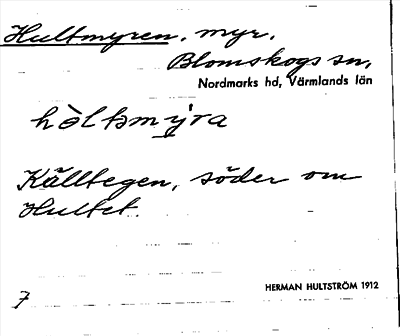 Hultmyren, myr,
Blomskogs sn,
Nordmarks hd, Värmlands län
hòltsmýra
Källtegen, söder om
Hultet.
HERMAN HULTSTRÖM 1912
7